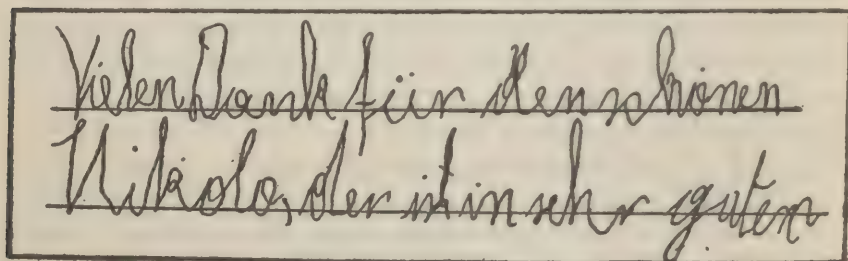 Vielen Dank für den schönen
Nikolo, der ist in sehr gutem